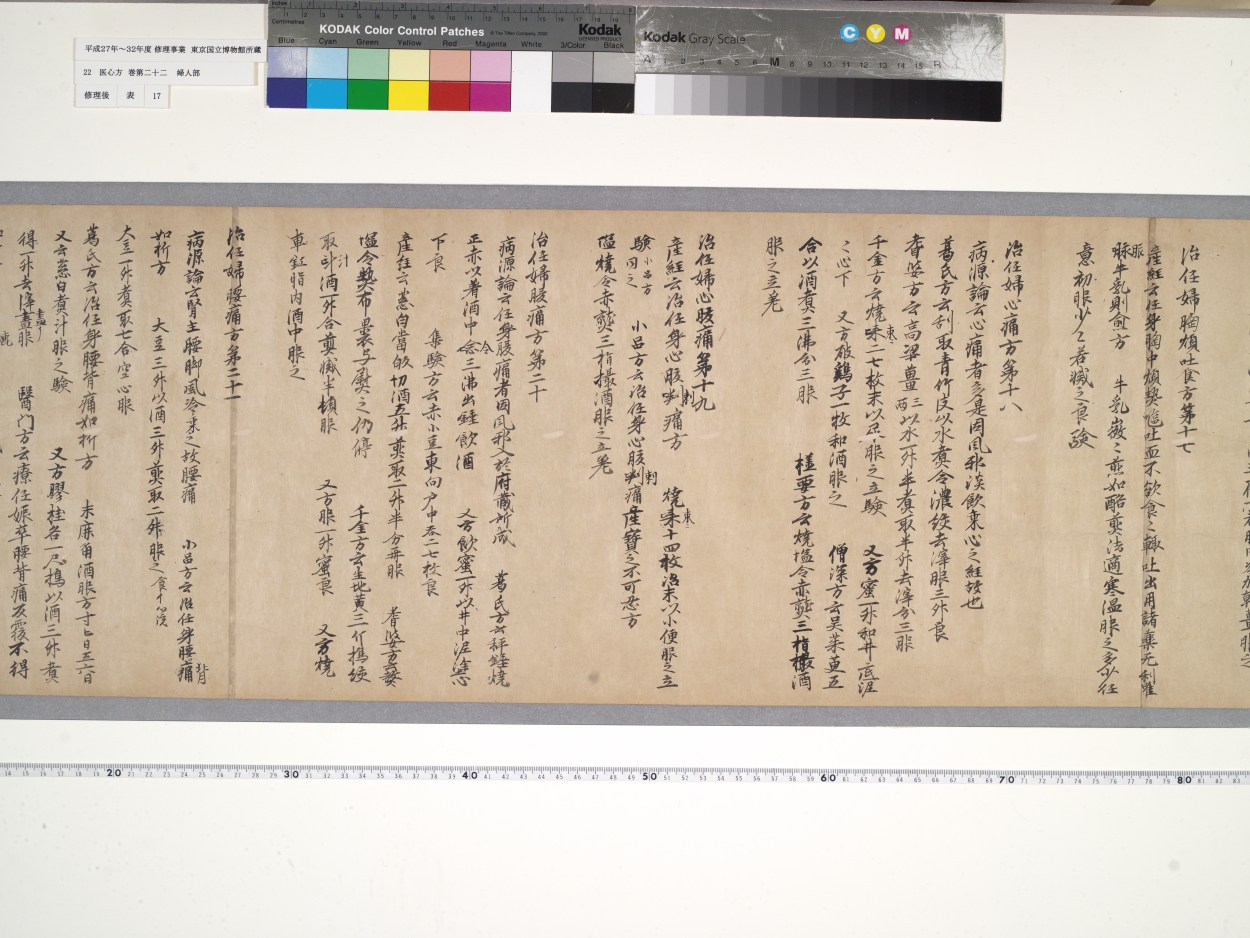 平成27年～32年度 修理事業 東京国立博物館所蔵
22 医心方 巻第二十二 婦人部
修理後 表 17
Inches
Centimetres
KODAK Color Control Patches
Kodak
LICENSED PRODUCT
Blue Cyan Green Yellow Red Magenta White 3/Color Black
Kodak Gray Scale
C Y M
A 1 2 3 4 5 6 M 8 9 10 11 12 13 14 15 B
治任婦胸煩吐食方第十七
産経云任身胸中煩熱嘔吐血不欲食々輙吐出用諸薬无利唯
服牛乳則愈方 牛乳微々煎如酪煎法適寒温服之多少任
意初服少々若減之良験
治任婦心痛方第十八
病源論云心痛者多是因風邪淡飲乗心之経故也
葛氏方云刮取青竹皮以水煮令濃絞去滓服三升良
耆婆方云高梁薑三両以水一升半煮取半升去滓分三服
千金方云焼棗二七枚末以尿服之立験 又方蜜一升和井底泥
之心下 又方破鶏子一牧和酒服之 僧深方云呉茱萸五
合以酒煮三沸分三服 極要方云焼塩令赤熱三指撮酒
服之立差
治任婦心腹痛第十九
産経云治任身心腹刺痛方 焼棗十四枚治末以小便服之立
験小品方同之 小品方云治任身心腹刺痛産宝之不可忍方
塩焼令赤熱三指撮酒服之立差
治任婦腹痛方第二十
病源論云任身腹痛者因風邪入於府蔵所成 葛氏方云秤錘焼
正赤以着酒中令三沸出錘飲酒 又方飲蜜一升以井中泥塗心
下良 集験方云赤小豆東向戸中呑二七枚良
産経云葱白当帰切酒五升煎取二升半分再服 耆婆方云熬
塩令熱布裹与熨之乃停 千金方云生地黄三斤搗絞
取汁酒一升合煎減半頓服 又方服一升蜜良 又方焼
車釭脂内酒中服之
治任婦腰痛方第二十一
病源論云腎主腰脚風冷乗之故腰痛 小品方云治任身腰背痛
如折方 大豆三升以酒三升煎取二升服之
大豆一升煮取七合空心服
葛氏方云治任身腰背痛如折方 末麻角酒服方寸匕日五六日
又云葱白煮汁服之験 又方膠桂各一尺搗以酒三升煮
得一升去滓尽服 醫门方云療任娠卒腰背痛反覆不得